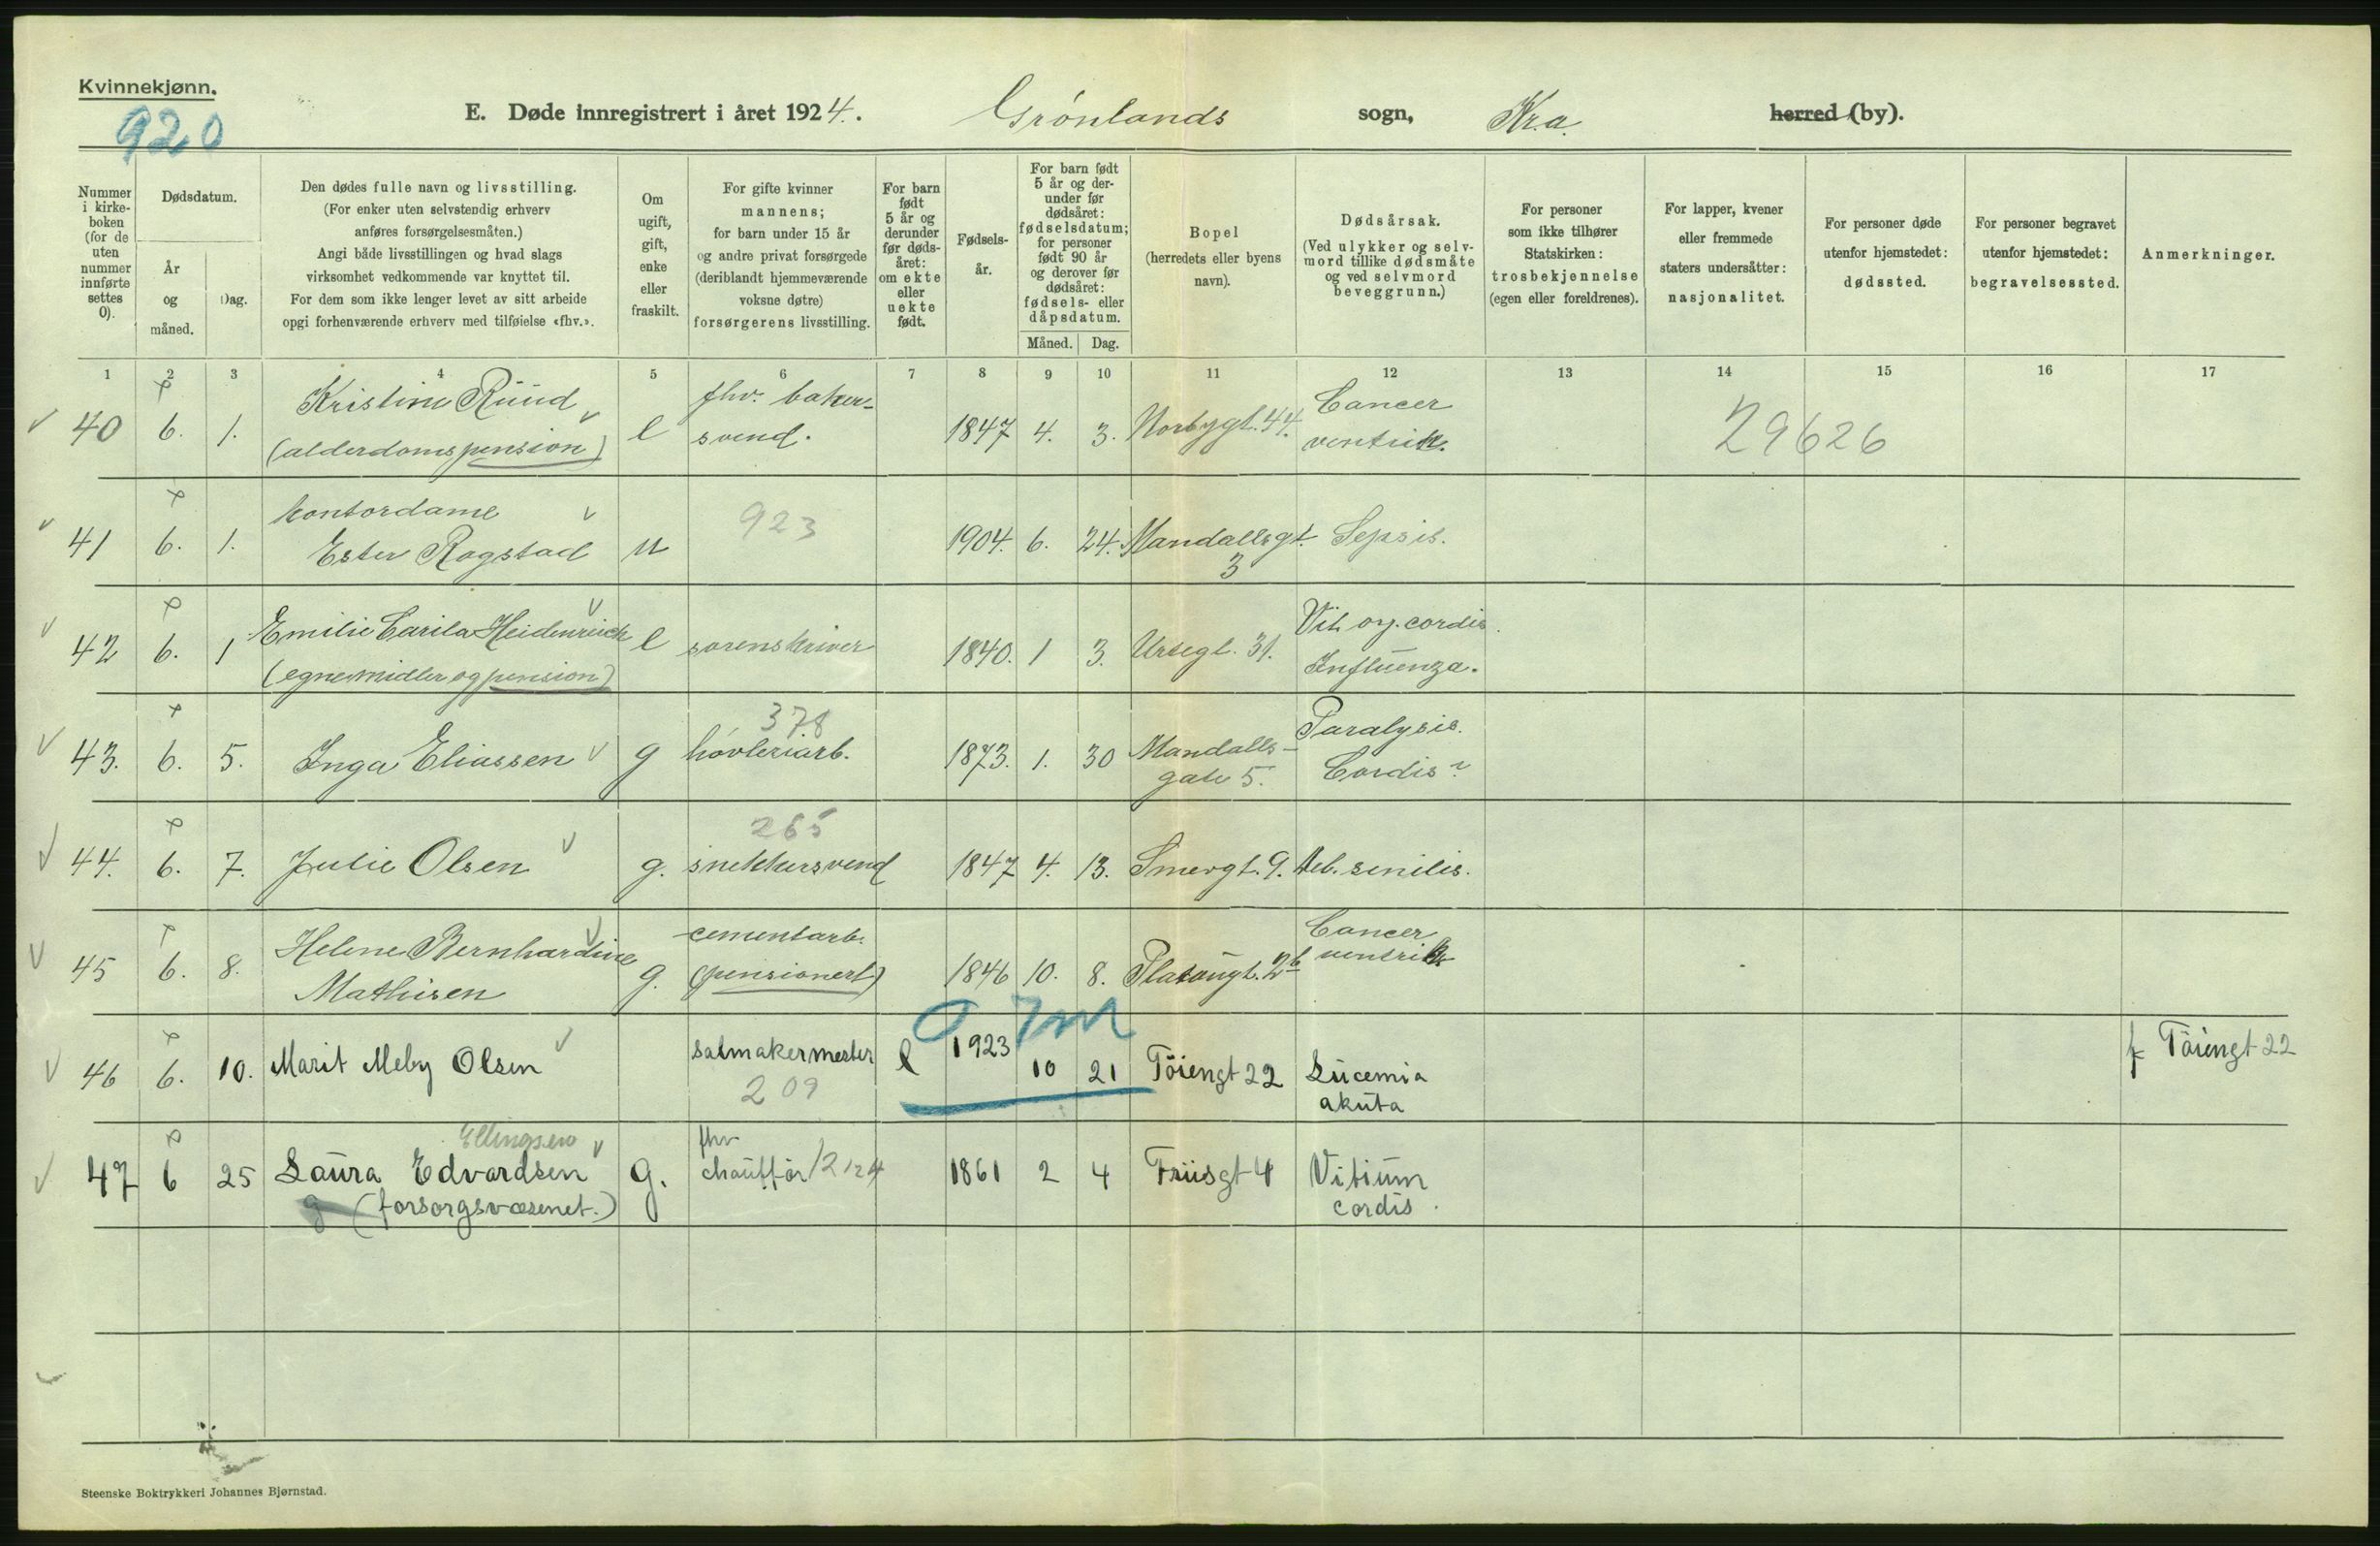 Kvinnekjønn.
920
E. Døde innregistrert i året 1924. Grönlands sogn, Kr.a. herred (by).
Nummer i kirke-boken (for de uten nummer innførte settes 0).
Dødsdatum.
År og måned.
Dag.
Den dødes fulle navn og livsstilling.
(For enker uten selvstendig erhverv
anføres forsørgelsesmåten.)
Angi både livsstillingen og hvad slags
virksomhet vedkommende var knyttet til.
For dem som ikke lenger levet av sitt arbeide
opgi forhenværende erhverv med tilføielse «fhv.».
Om ugift, gift, enke eller fraskilt.
For gifte kvinner
mannens;
for barn under 15 år
og andre privat forsørgede
(deriblandt hjemmeværende
voksne døtre)
forsørgerens livsstilling.
For barn født 5 år og derunder før døds-året: om ekte eller uekte født.
Fødsels-år.
For barn født 5 år og der-under før dødsåret: fødselsdatum; for personer født 90 år og derover før dødsåret: fødsels- eller dåpsdatum.
Måned. Dag.
Bopel
(herredets eller byens
navn).
Dødsårsak.
(Ved ulykker og selv-
mord tillike dødsmåte
og ved selvmord
beveggrunn.)
For personer
som ikke tilhører
Statskirken:
trosbekjennelse
(egen eller foreldrenes).
For lapper, kvener
eller fremmede
staters undersåtter:
nasjonalitet.
For personer døde
utenfor hjemstedet:
dødssted.
For personer begravet
utenfor hjemstedet:
begravelsessted.
Anmerkninger.
1 2 3 4 5 6 7 8 9 10 11 12 13 14 15 16 17
40 6. 1. Kristine Rüüd (alderdomspension) e fhv. baker-svend. 1847 4. 3. Norbygt. 44. Cancer ventrik. 29626
41 6. 1. kontordame Ester Rogstad u 923 1904. 6. 24. Mandallsgt. 3 Sepsis.
42 6. 1 Emilie Carila Heidenreich (egne midler og pension) e sorenskriver 1840. 1 3. Urtegt. 31. Vit. org. cordis. Influenza.
43. 6. 5. Inga Eliassen g 378 hövleriarb. 1873. 1. 30 Mandalls-gate 5. Paralysis. Cordis?
44. 6. 7. Julie Olsen g. 265 snekkersvend 1847 4. 13. Smergt. 9. Deb. senilis.
45 6. 8. Helene Bernhardine Mathisen g. cementarb. (pensionert) 1846 10. 8. Platougt. 2b Cancer ventrik.
46 6. 10. Marit Meby Olsen salmakermester 209 e 0 7m 1923 10 21 Töiengt 22 Lücemia aküta f Töiengt 22
47 6 25 Ellingsen Laüra Edvardsen g (forsorgsvæsenet.) g. fhv chauffør 12124 1861 2 4 Friisgt 4 Vitiüm cordis.
Steenske Boktrykkeri Johannes Bjørnstad.